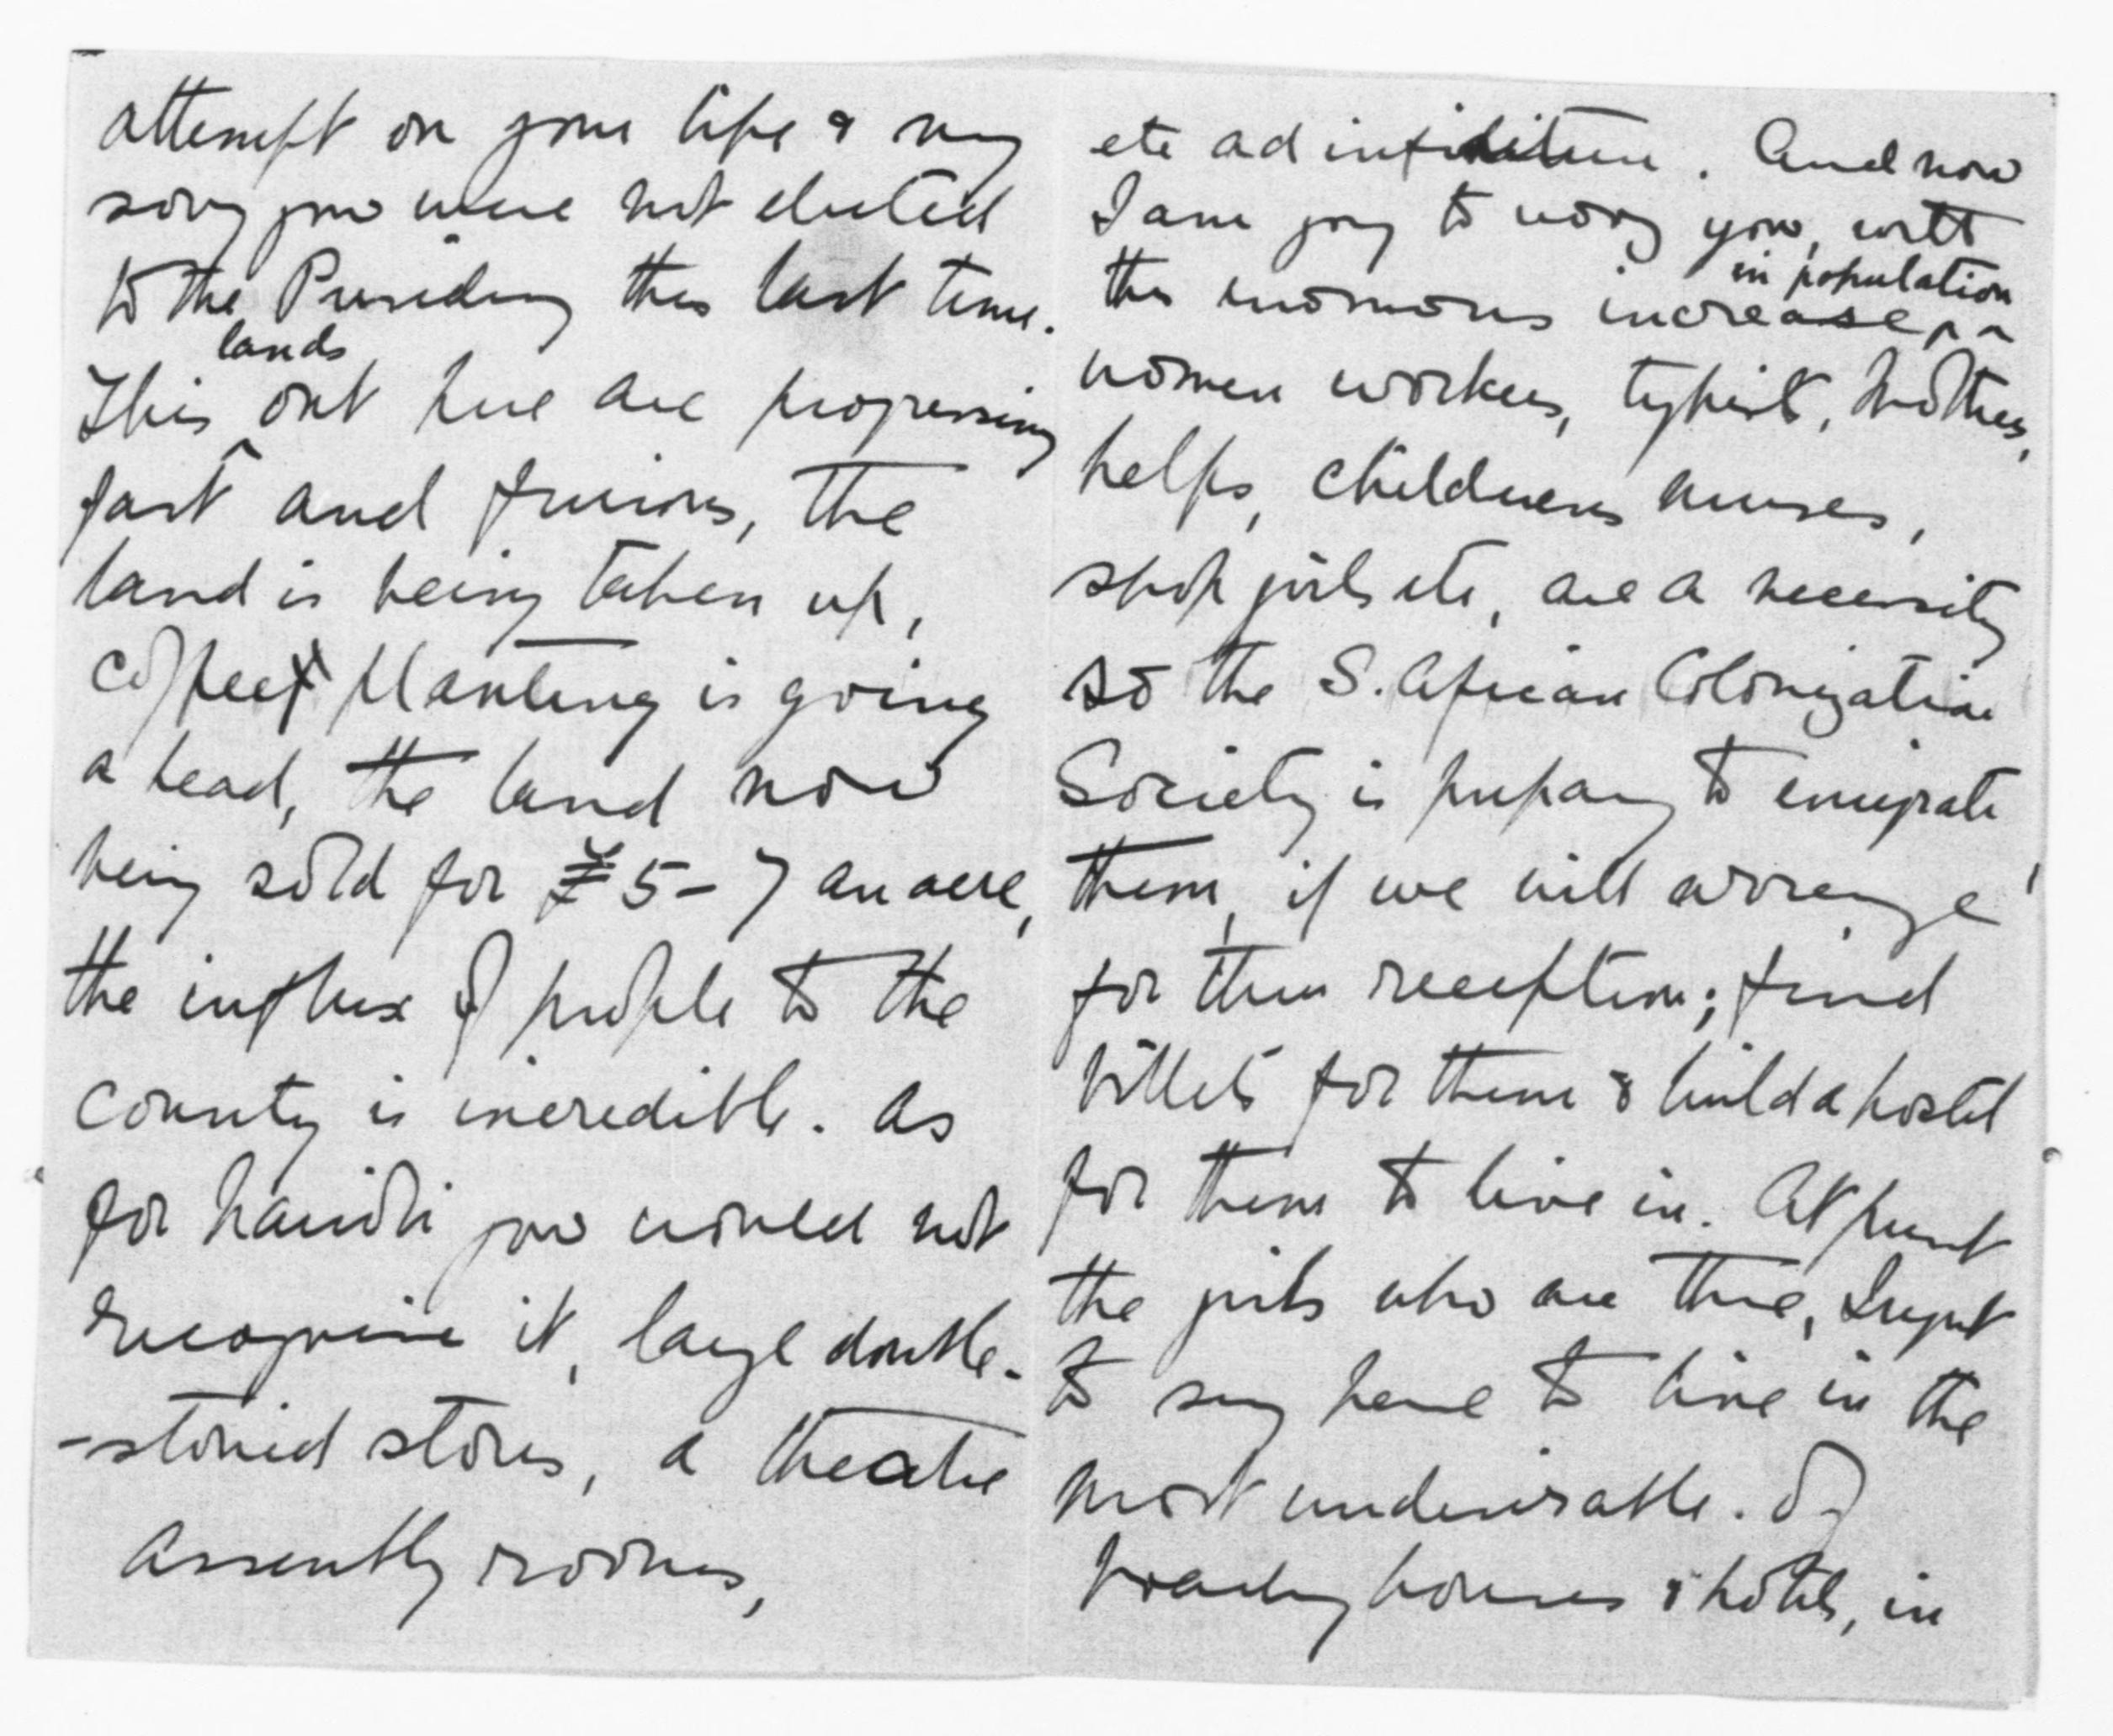 attempt on your life & very
sorry you were not elected
to the Presidency this last time.
lands
This out here are progressing
fast and furious, the
land is being taken up,
coffee planting is going
a head, the land now
being sold for £5-7 an acre,
the influx of people to the
country is incredible. As
for Nairobi you would not
recognise it, large double-
-storied stores, a theatre
Assembly rooms,
etc ad infinitum. And now
I am going to worry you, with
in population
this enormous increase
women workers, typists, mothers,
helps, childrens nurses,
shop girls etc, are a necessity
so the S. African Colonization
Society is preparing to emigrate
them, if we will arrange
for their reception; find
billets for them & build a hostel
for them to live in. At present
the girls who are there, I regret
to say have to live in the
most undesirable. of
boarding houses & hotels, in